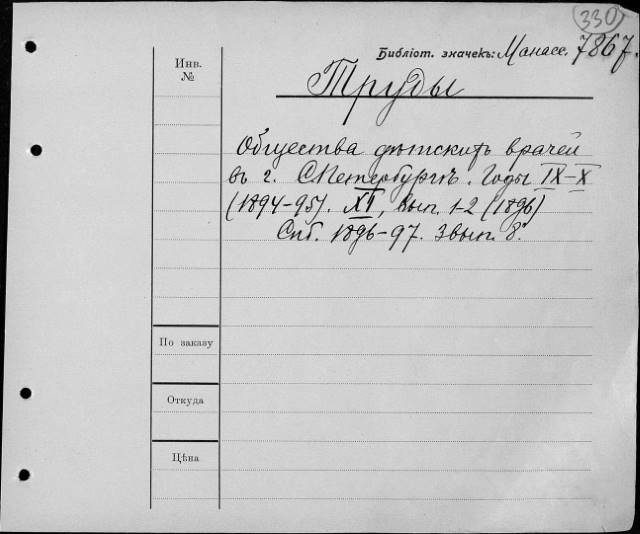 330
Библіот. значекъ: Манасс. 7867.
Инв.
№
Труды
Общества дѣтскихъ врачей
въ г. СПетербургѣ. Годы IX-X
(1894-95). XI, вып. 1-2 (1896)
Спб. 1896-97. 3 вып. 8°.
По заказу
Откуда
Цѣна